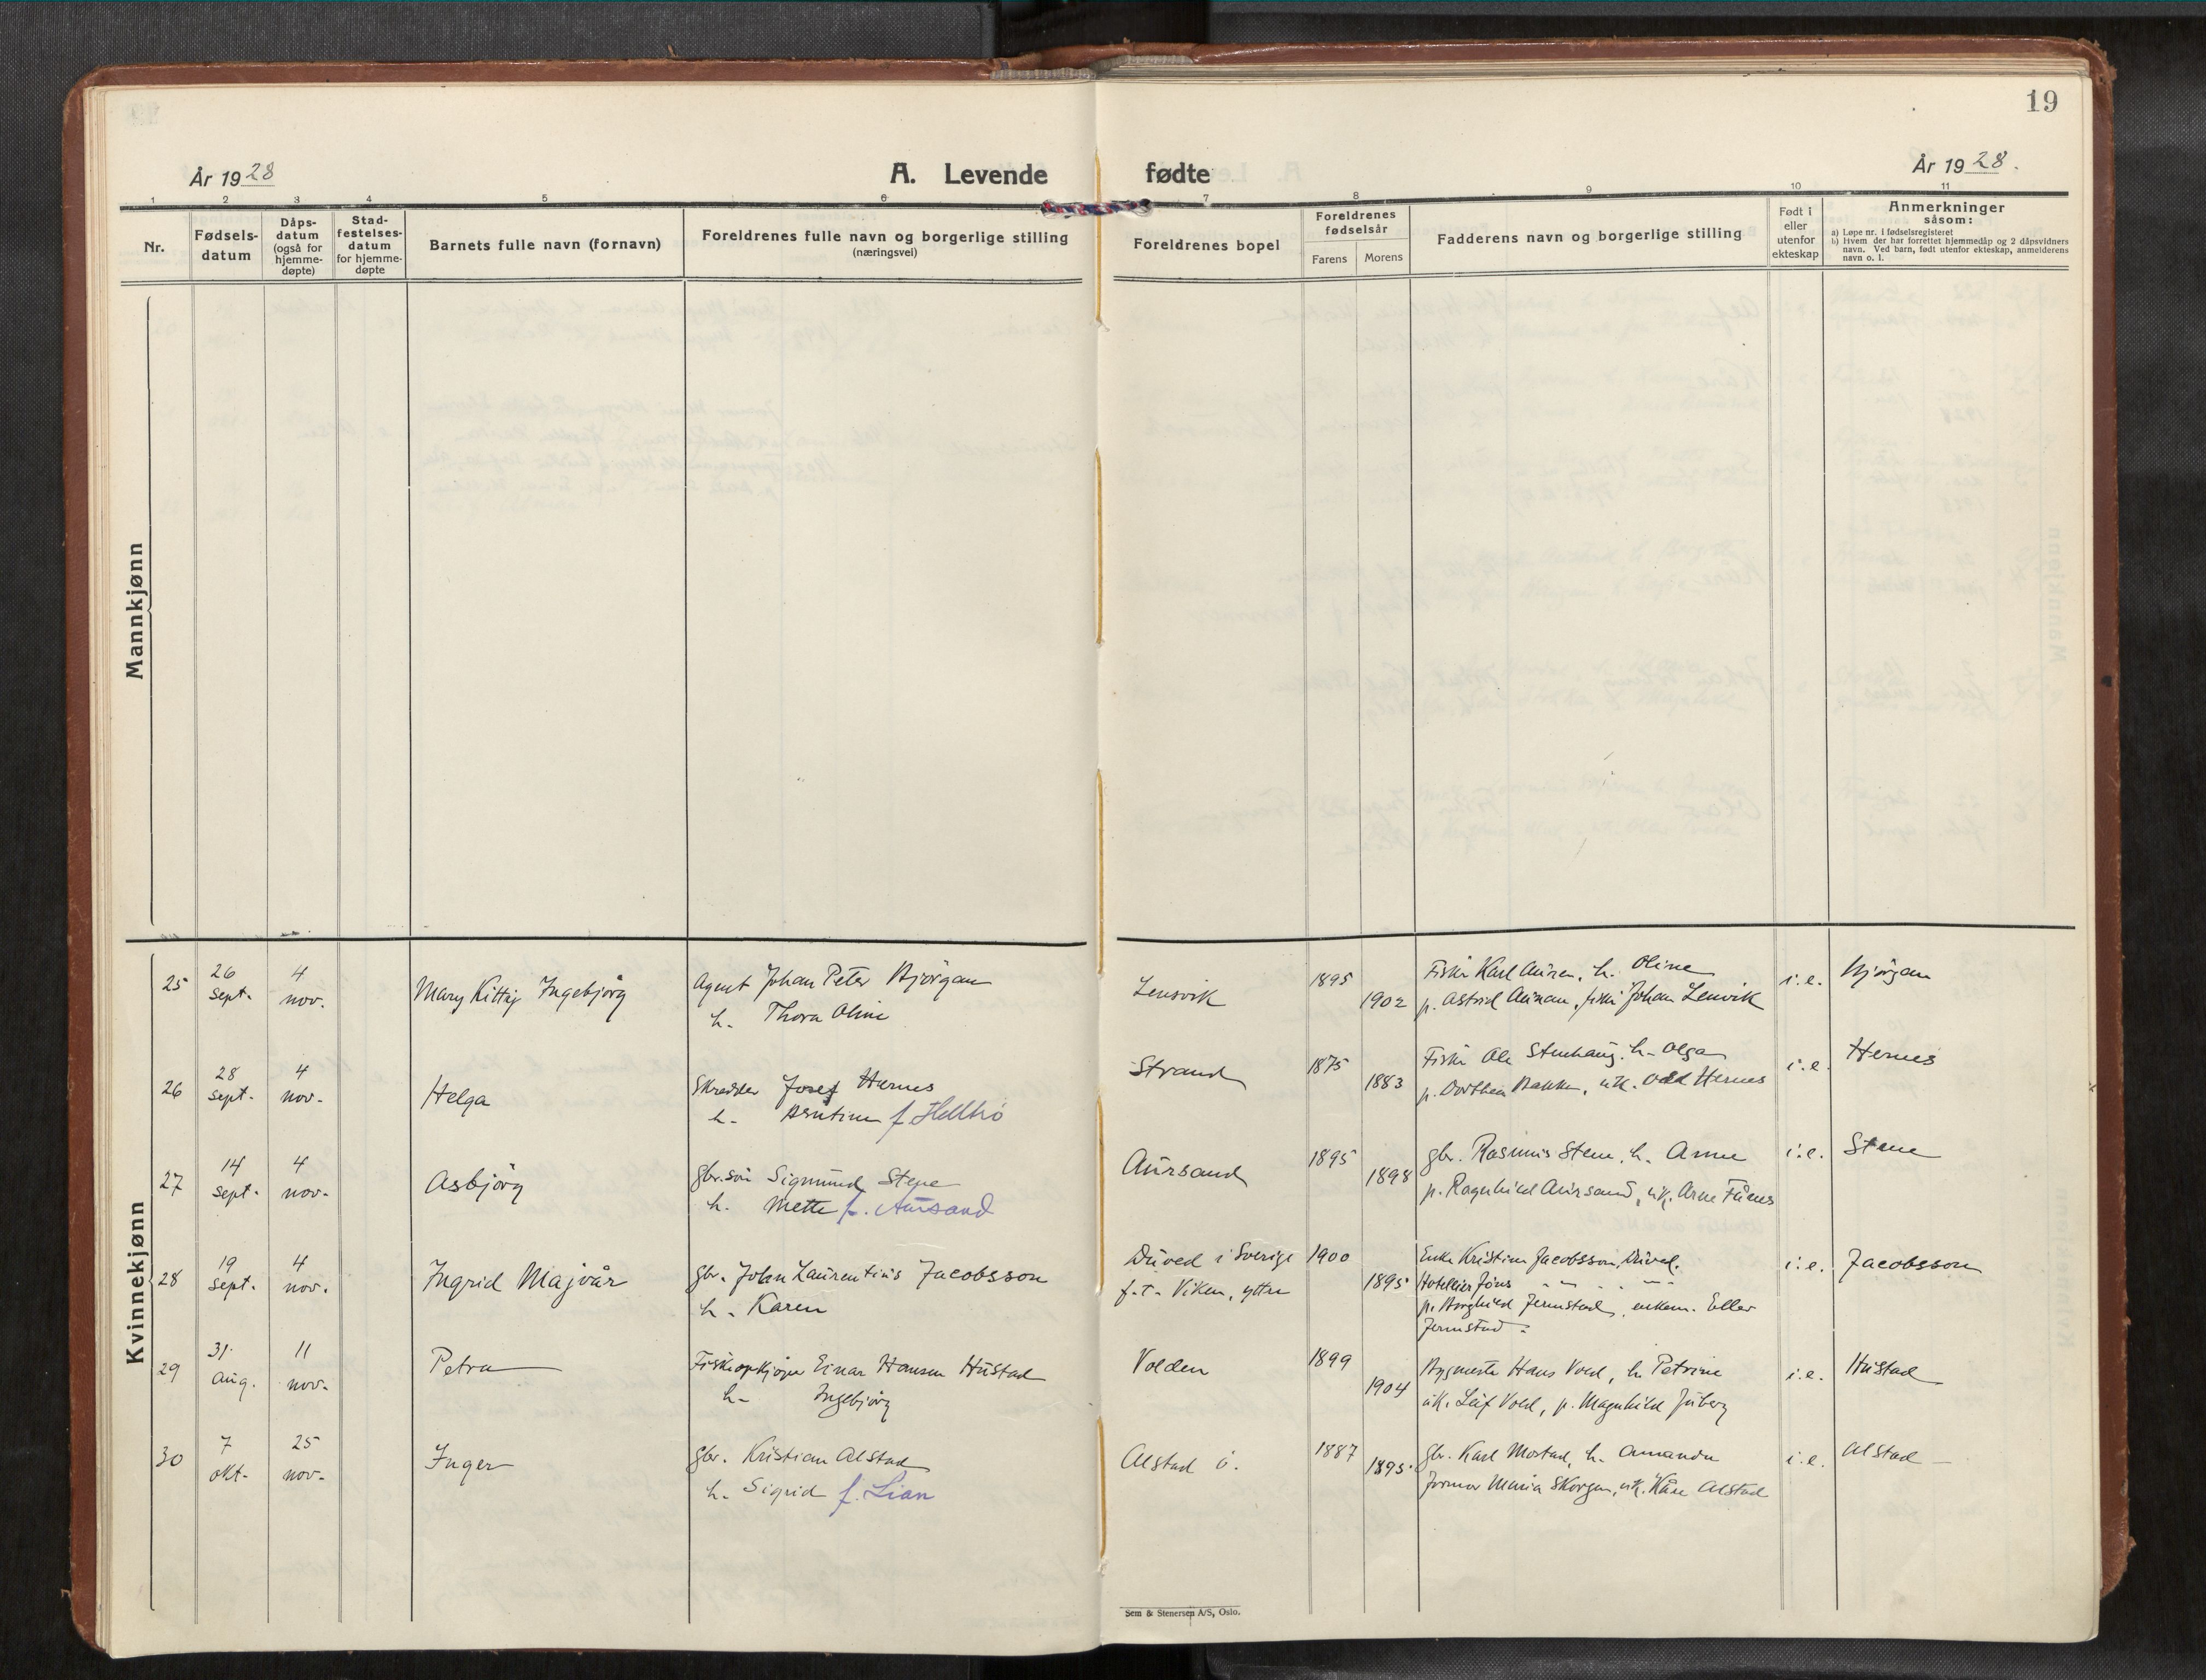 19
År 1928
A. Levende fødte
År 1928.
1 2 3 4 5 6 7 8 9 10 11
Nr.
Fødsels-
datum
Dåps-
datum
(også for
hjemme-
døpte)
Stad-
festelses-
datum
for hjemme-
døpte
Barnets fulle navn (fornavn)
Foreldrenes fulle navn og borgerlige stilling
(næringsvei)
Foreldrenes bopel
Foreldrenes
fødselsår
Farens
Morens
Fadderens navn og borgerlige stilling
Født i
eller
utenfor
ekteskap
Anmerkninger
såsom:
a) Løpe nr. i fødselsregisteret
b) Hvem der har forrettet hjemmedåp og 2 dåpsvidners
navn. Ved barn, født utenfor ekteskap, anmelderens
navn o. l.
Mannkjønn
Kvinnekjønn
25
26
sept.
4
nov.
Mary Kitty Ingebjørg
Agent Johan Peter Bjørgan
h. Thora Oline
Lensvik
1895
1902
Fisker Karl Aunan, h. Oline
p. Astrid Aunan, fisker Johan Lenvik
i.e.
Bjørgan
26
28
sept.
4
nov.
Helga
Skredder Josef Hernes
h. Berntine f. Helltrø
Strand
1875
1883
Fisker Ole Stenhaug, h. Olga
p. Dorthea Bakken, uk. Odd Hernes
i.e.
Hernes
27
14
sept.
4
nov.
Asbjørg
gbr.søn Sigmund Stene
h. Mette f. Aursand
Aursand
1895
1898
gbr. Rasmus Stene, h. Anne
p. Ragnhild Aursand, uk. Arne Fånes
i.e.
Stene
28
19
sept.
4
nov.
Ingrid Majvår
gbr. John Laurentius Jacobsson
h. Karen
Duved i Sverige
f.t. Viken, yttre
1900
1895
Enke Kristine Jacobsson, Duved.
Hotellier Jöns
p. Borghild Jermstad, enkem. Eller
Jermstad
i.e.
Jacobsson
29
31
aug.
11
nov.
Petra
Fiskeopkjøper Einar Hansen Hustad
h. Ingebjørg
Volden
1899
1904
Bygmester Hans Vold, h. Petrine
uk. Leif Vold, p. Magnhild Juberg
i.e.
Hustad
30
7
okt.
25
nov.
Inger
gbr. Kristian Alstad
h. Sigrid f. Lian
Alstad ø.
1887
1895
gbr. Karl Mostad, h. Amanda
Jormor Maria Skorgen, uk. Kåre Alstad
i.e.
Alstad
Sem & Stenersen A/S, Oslo.